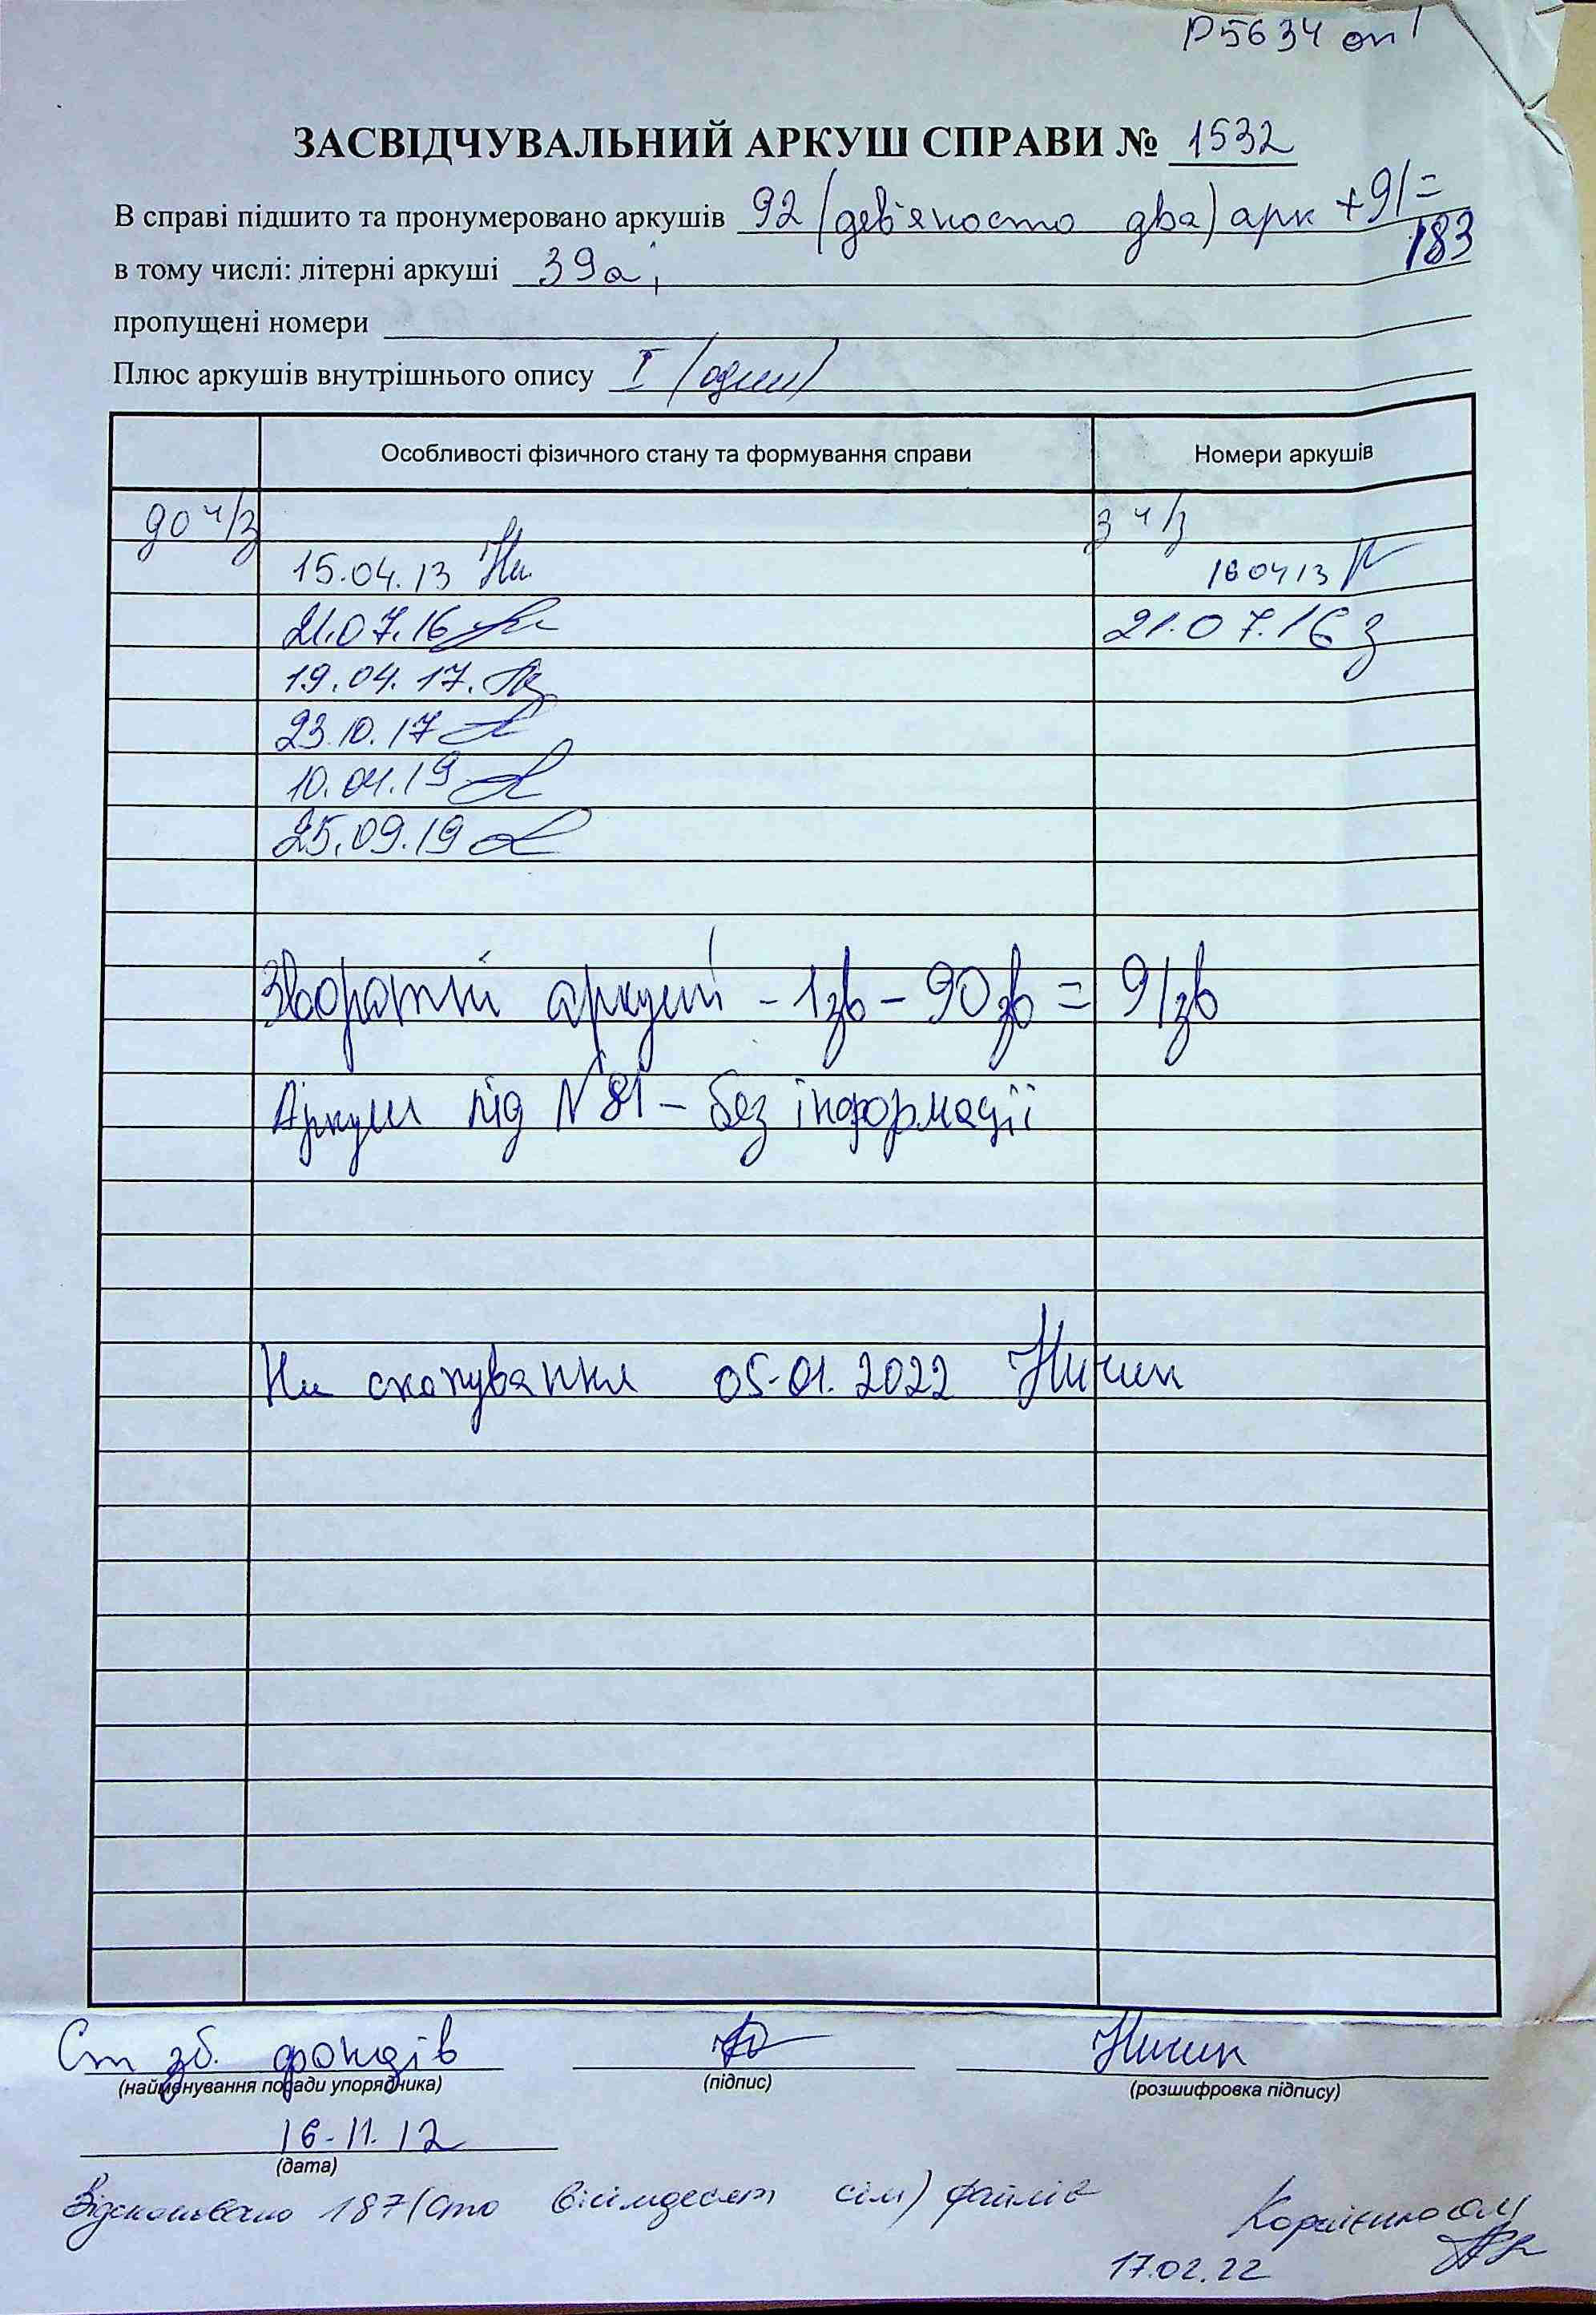 Р5634 оп 1
ЗАСВІДЧУВАЛЬНИЙ АРКУШ СПРАВИ № 1532
В справі підшито та пронумеровано аркушів 92 (дев'яносто два) арк +91=
183
в тому числі: літерні аркуші 39а;
пропущені номери
Плюс аркушів внутрішнього опису I (один)
Особливості фізичного стану та формування справи Номери аркушів
до ч/з з ч/з
15.04.13 160413
21.07.16 21.07.16
19.04.17.
23.10.17
10.04.19
25.09.19
Зворотні аркуші - 1зв - 90зв = 91зв
Аркуш під N 81 - без інформації
На сканування 05.01.2022 Ничик
Ст зб. фондів Ничик
(найменування посади упорядника) (підпис) (розшифровка підпису)
16.11.12
(дата)
Відскановано 187 (сто вісімдесят сім) файлів
17.02.22